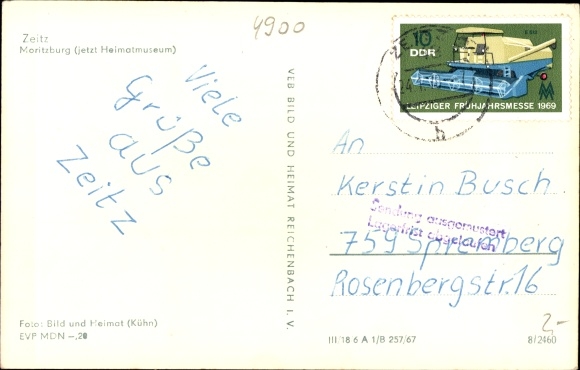 4900
Zeitz
Moritzburg (jetzt Heimatmuseum)
Viele
Grüße
aus
Zeitz
Foto: Bild und Heimat (Kühn)
EVP MDN –,20
VEB BILD UND HEIMAT REICHENBACH I. V.
10
DDR
LEIPZIGER FRÜHJAHRSMESSE 1969
MM
b
An
Kerstin Busch
Sendung ausgemustert
Lagerfrist abgelaufen
759 Spremberg
Rosenbergstr. 16
2,-
III/18 6 A 1/B 257/67
8/2460